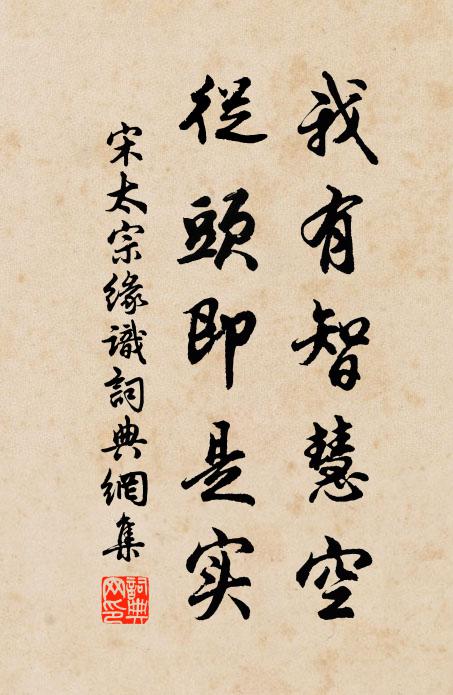 我有智慧空
從頭即是实
宋太宗緣識詞典網集
詞典网印